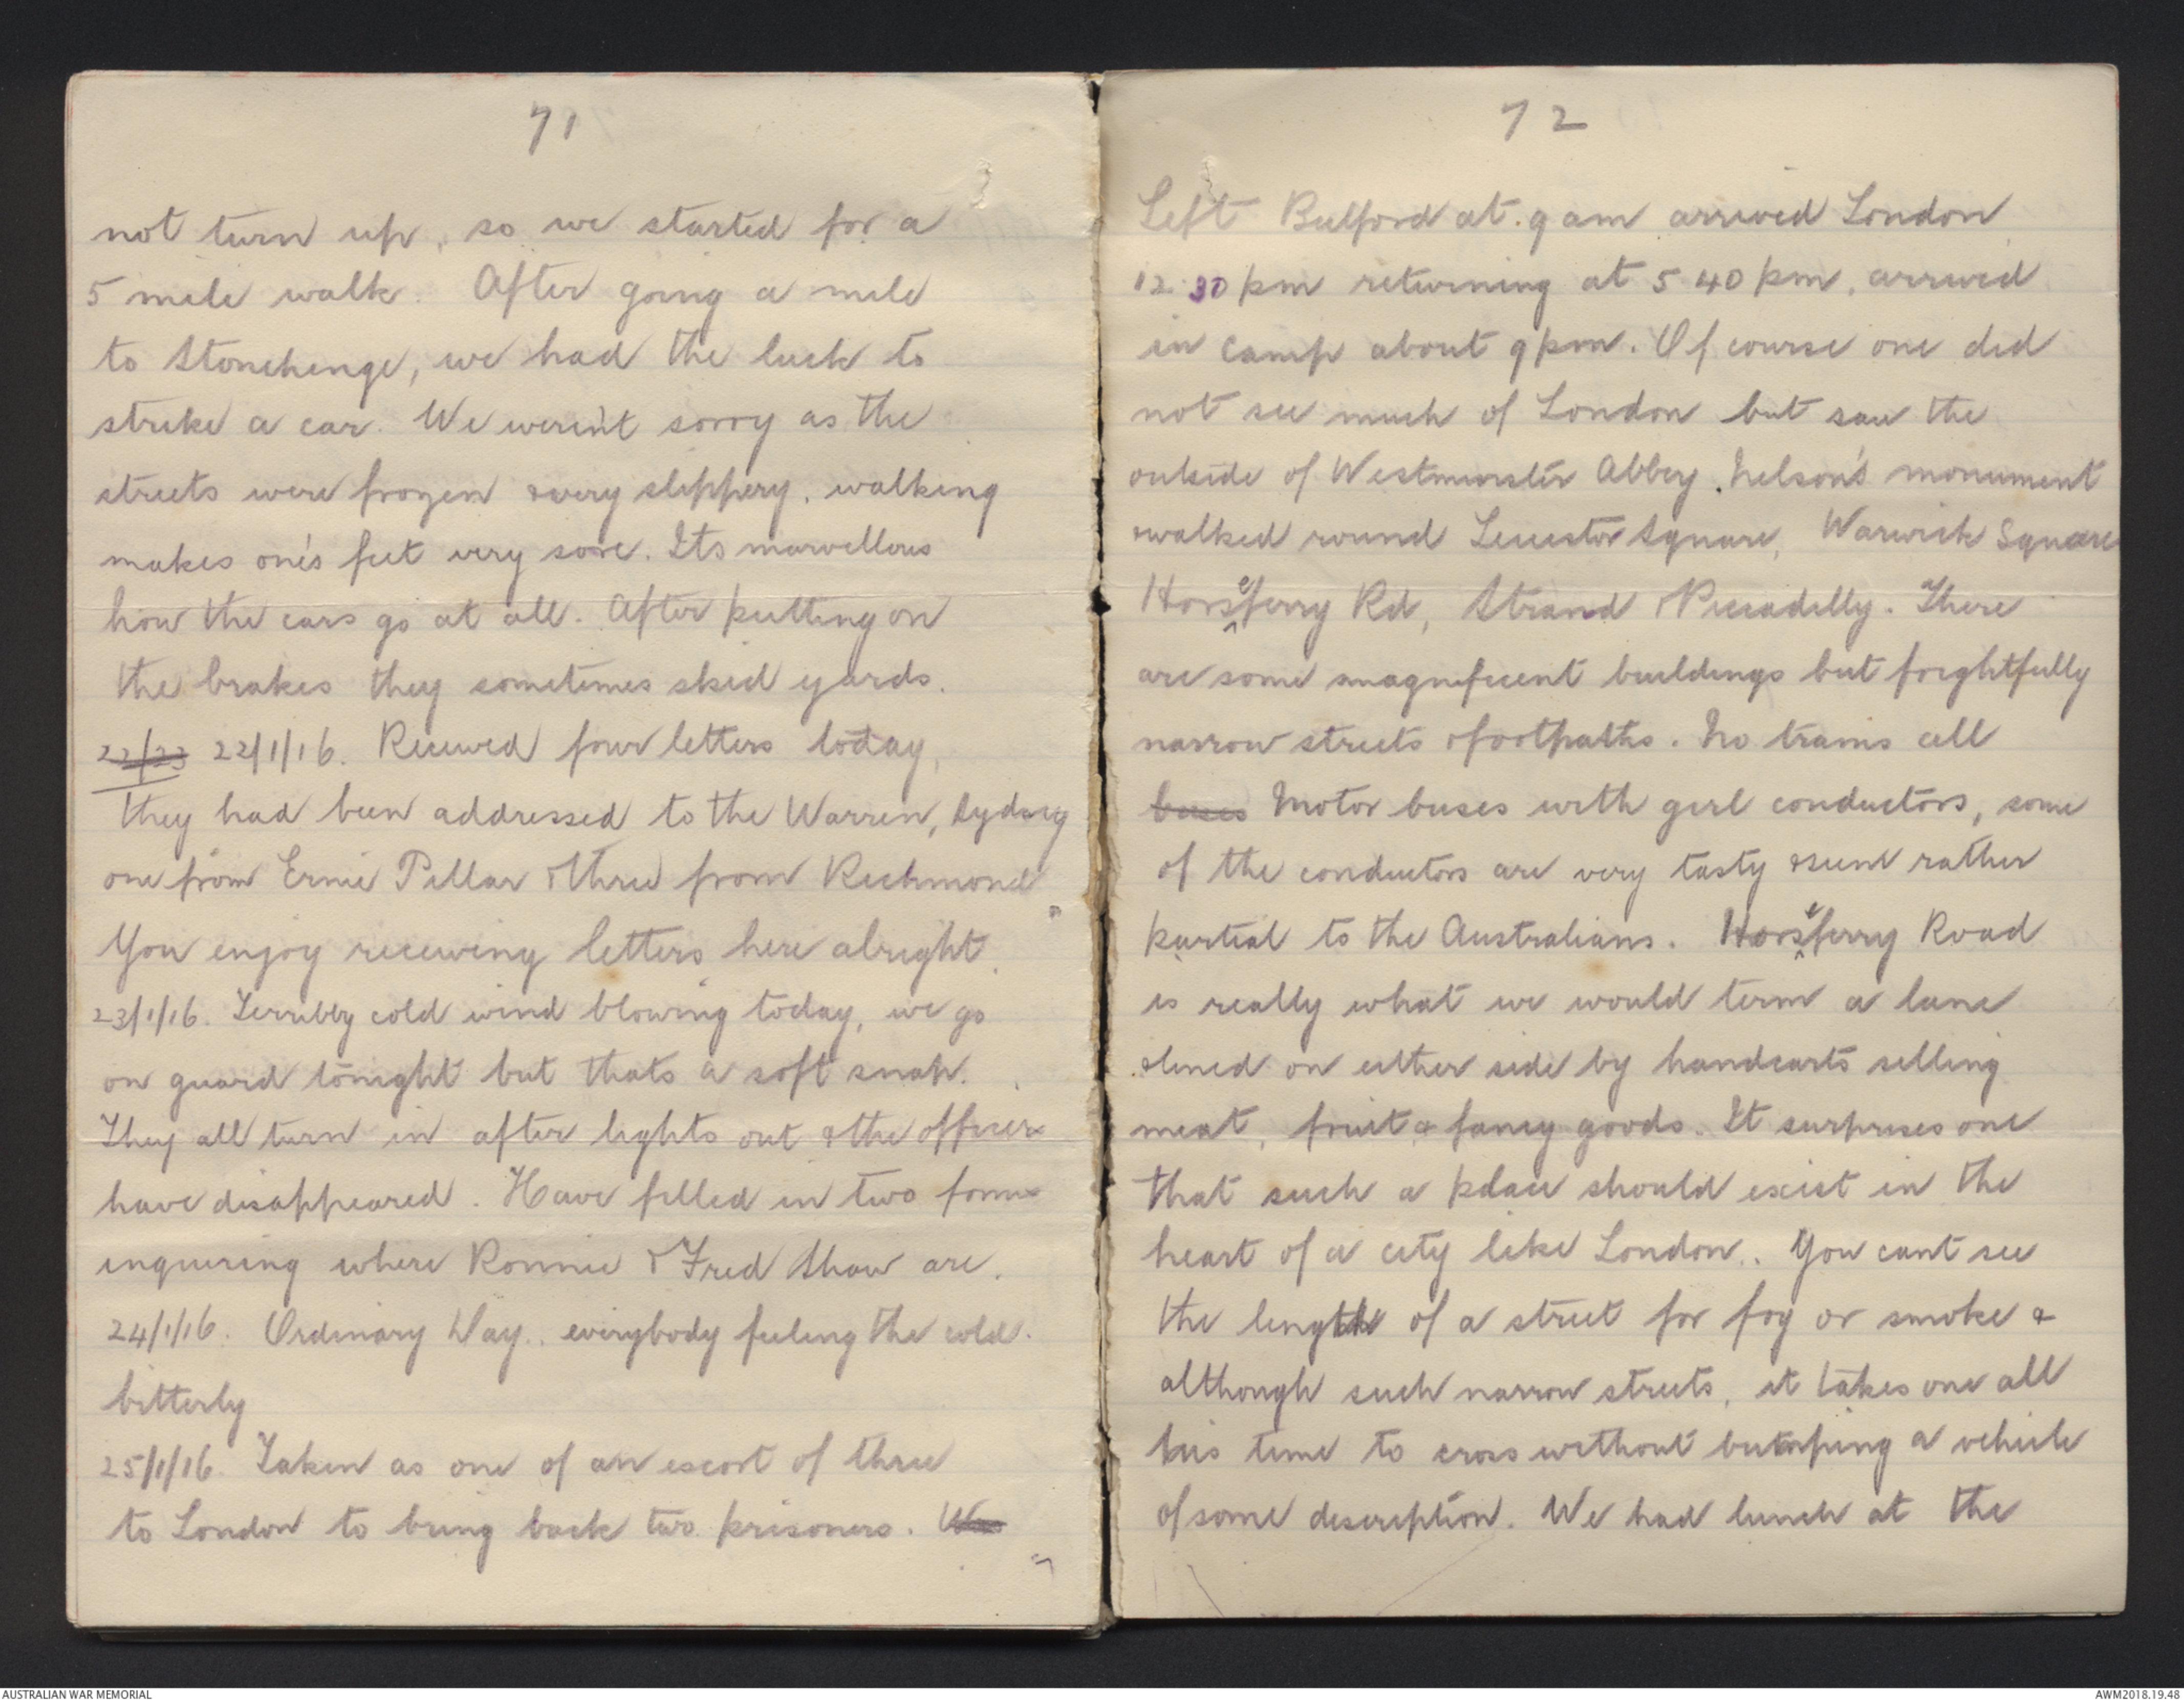 71
not turn up, so we started for a
5 mile walk. After going a mile
to Stonehenge, we had the luck to
strike a car. We weren't sorry as the
streets were frozen & very slippery, walking
makes one's feet very sore. Its marvellous
how the cars go at all. After putting on
the brakes they sometimes skid yards.
22/23 22/1/16. Received four letters today,
they had been addressed to the Warren, Sydney
one from Ernie Pillar & three from Richmond
You enjoy receiving letters here alright.
23/1/16. Terribly cold wind blowing today, we go
on guard tonight but thats a soft snap.
They all turn in after lights out & the officers
have disappeared. Have filled in two forms
inquiring where Ronnie & Fred Shaw are.
24/1/16. Ordinary Day.. everybody feeling the cold.
bitterly
25/1/16 Taken as one of an escort of three
to London to bring back two prisoners. Was
72
Left Bulford at 9 am arrived London
12 30 pm returning at 5 40 pm, arrived
in camp about 9 pm. Of course one did
not see much of London but saw the
outside of Westminster Abbey. Nelson's monument
& walked round Leicester Square, Warwick Square
Horseferry Rd, Strand & Piccadilly. There
are some magnificent buildings but frightfully
narrow streets & footpaths. No trams all
buses Motor buses with girl conductors, some
of the conductors are very tasty & seem rather
partial to the Australians. Horseferry Road
is really what we would term a lane
& lined on either side by handcarts selling
meat, fruit & fancy goods. It surprises one
that such a place should exist in the
heart of a city like London.. You cant see
the length of a street for fog or smoke &
although such narrow streets, it takes one all
his time to cross without bumping a vehicle
of some description. We had lunch at the
AUSTRALIAN WAR MEMORIAL
AWM2018.19.48